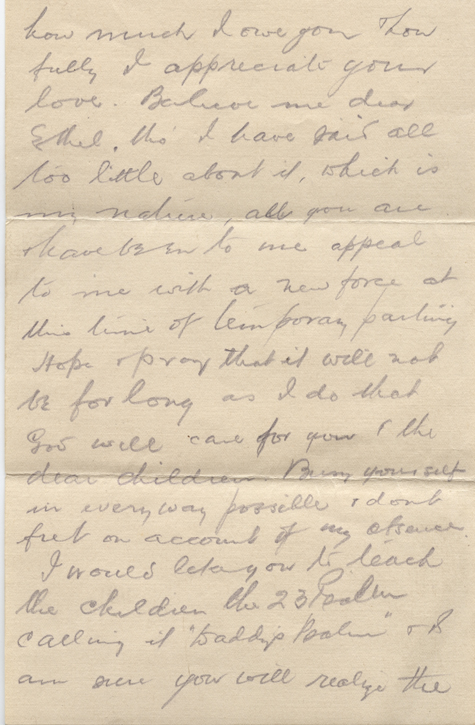 how much I owe you & how
fully I appreciate your
love. Believe me dear
Ethel, tho' I have said all
too little about it, which is
my nature, all you are
& have been to me appeal
to me with a new force at
this time of temporary parting
Hope & pray that it will not
be for long as I do that
God will care for you & the
dear children. Busy yourself
in every way possible & dont
fret on account of my absence.
I would like you to teach
the children the 23 Psalm
calling it "Daddy's Psalm" & I
am sure you will realize the